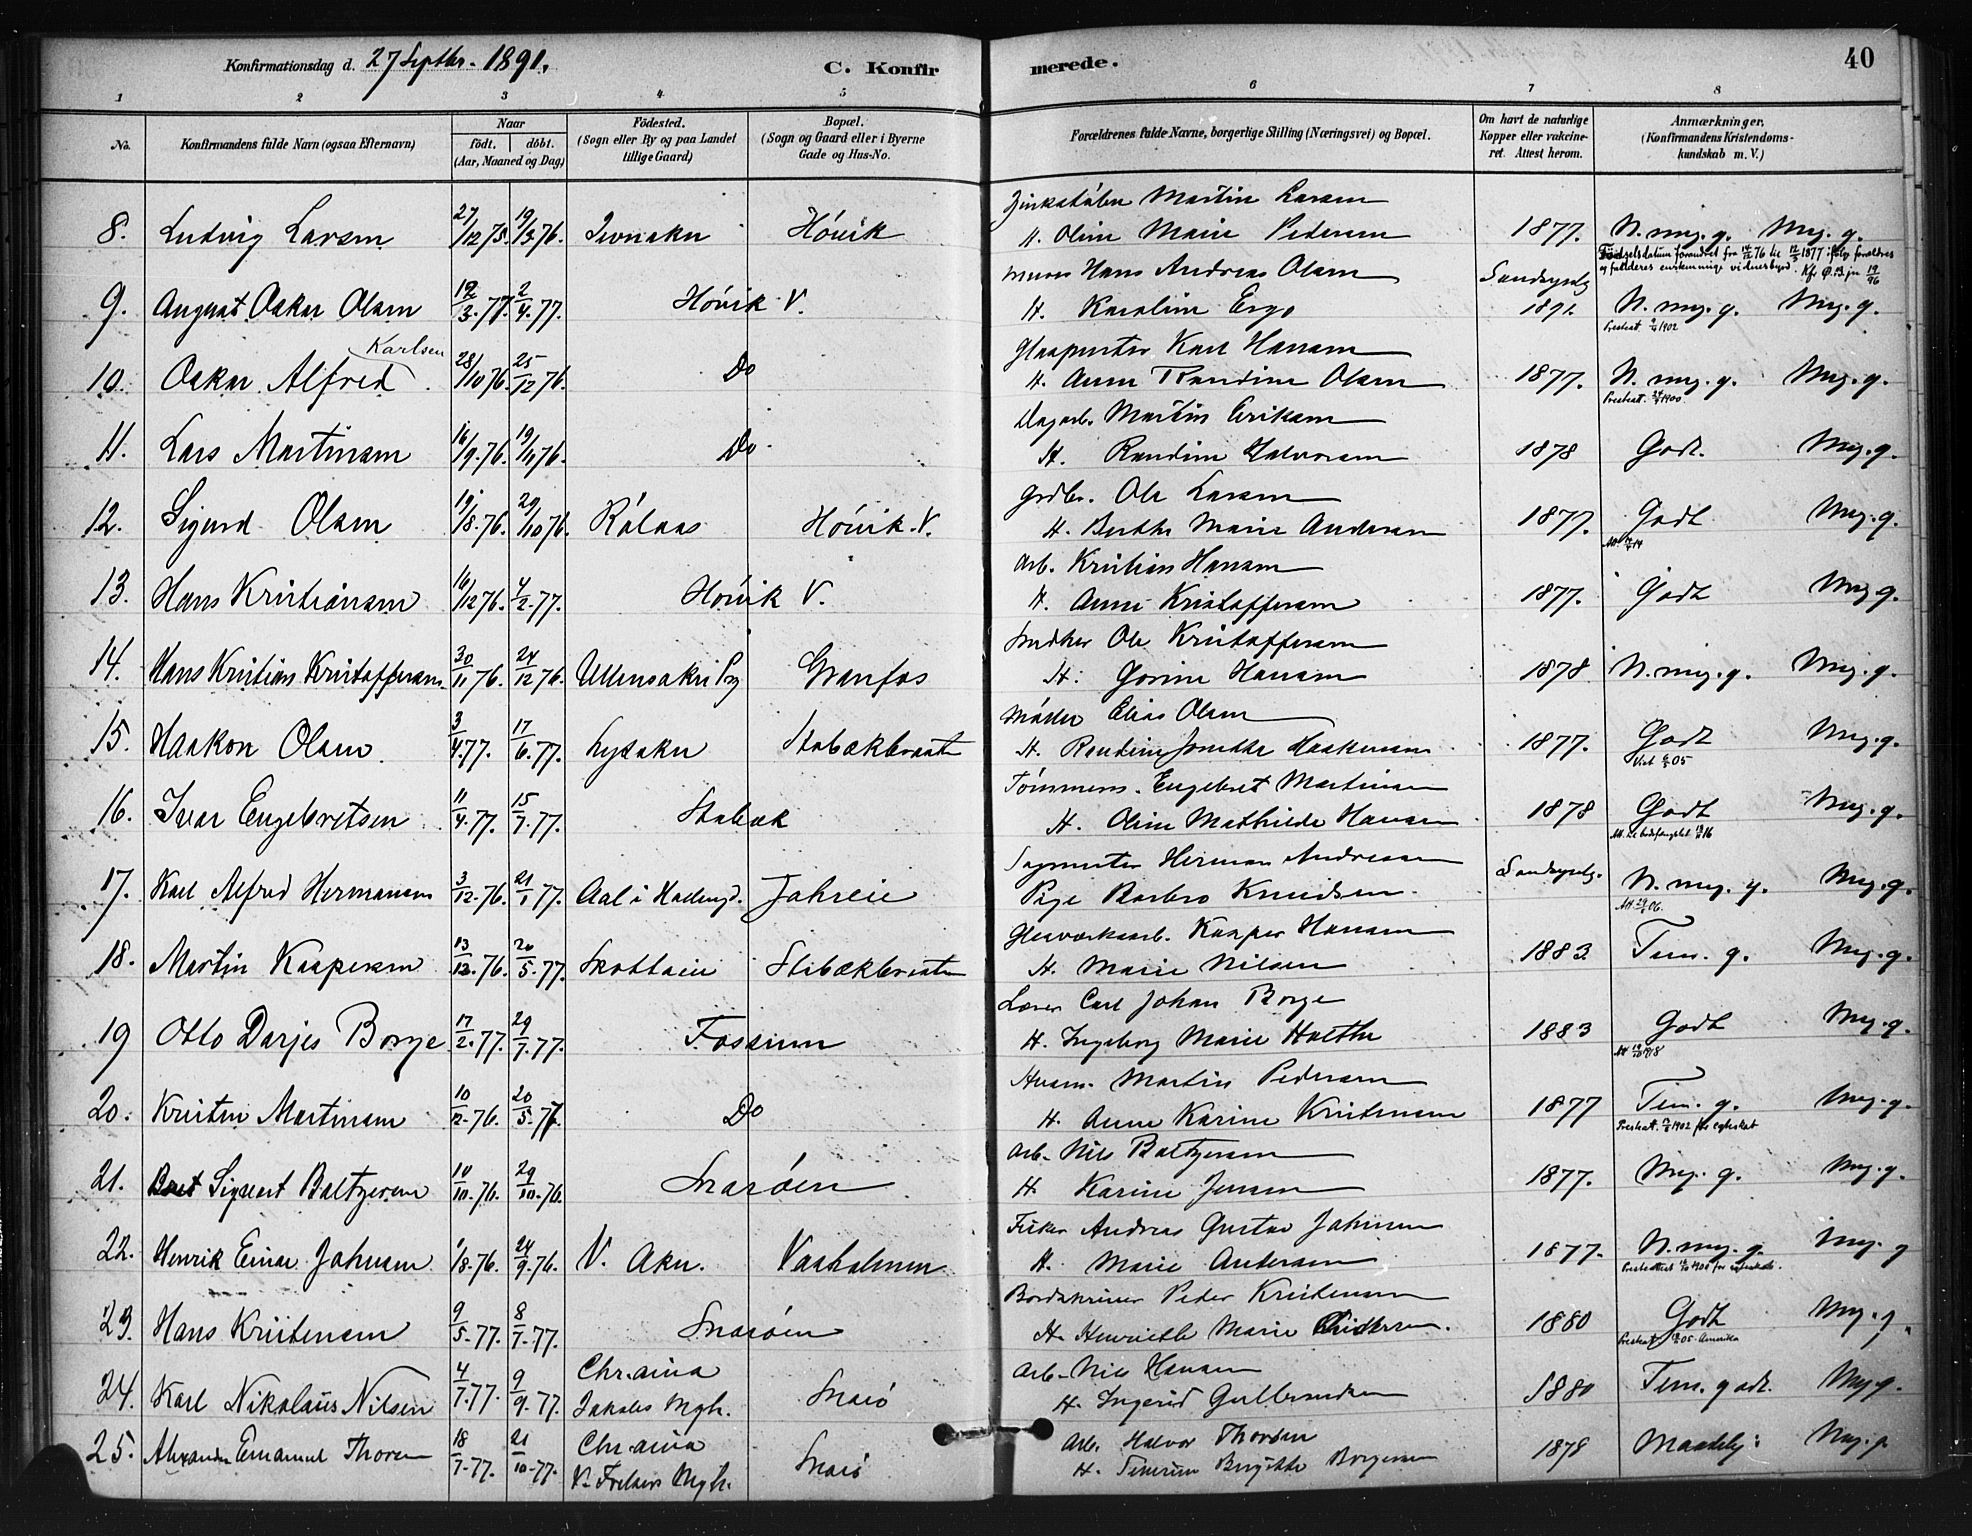 Konfirmationsdag d. 27 Septbr. 1891. C. Konfir merede. 40
1 2 3 4 5 6 7 8
No. Konfirmandens fulde Navn (ogsaa Efternavn) Naar födt. döbt. (Aar, Maaned og Dag) Födested. (Sogn eller By og paa Landet tillige Gaard) Bopæl. (Sogn og Gaard eller i Byerne Gade og Hus-No. Forældrenes fulde Navne, borgerlige Stilling (Næringsvei) og Bopæl. Om havt de naturlige Kopper eller vakcineret. Attest herom. Anmærkninger. (Konfirmandens Kristendomskundskab m. V.)
Martin Larsen
8. Ludvig Larsen 27/12 75. 19/3 76. Høvik H. Oline Marie Pedersen 1877. N. meg. g. Meg. g.
Födselsdatum forandret fra 12/3 76 til 12/3 1877 ifølge forældres og fadderes enstemmige vidnesbyrd.
Murer Hans Andreas Olsen Sandsynlg
9. August Oskar Olsen 12/3. 77. 2/4. 77. Høvik V. H. Karoline Ergo 1891. N. meg. g. Meg. g.
Presteat. 1902
Glaspuster Karl Hansen
10. Oskar Alfred Karlsen 28/10 76. 25/12 76. Do H. Anne Randine Olsen 1877. N. meg. g. Meg. g.
Presteat. 1900
Dagarb. Martin Eriksen
11. Lars Martinsen 16/9. 76. 19/11 76. Do. H. Randine Halvorsen 1878 Godt. Meg. g.
Grdbr. Ole Larsen
12. Sigurd Olsen 19/8. 76. 29/10 76. Rålaas Høvik. V. H. Berthe Marie Andersen 1877. Godt Meg. g.
Arb. Kristian Hansen
13. Hans Kristiansen 16/12 76. 4/2. 77. Høvik V. H. Anne Kristoffersen 1877. Godt Meg. g.
Snedker Ole Kristoffersen
14. Hans Kristian Kristoffersen 30/11 76. 24/12 76. Ullensaker Prg Granfos H. Gorine Hansen 1878 N. meg. g. Meg. g.
Møller Elias Olsen
15. Haakon Olsen. 3/4. 77. 17/6. 77. Lysaker Stabækbraaten H. Randine Josefthe Haakensen 1877. Godt Meg. g.
Viet 05
Tömmerm. Engebret Martinsen
16. Ivar Engebretsen 11/4. 77. 15/7. 77. Stabæk H. Oline Mathilde Hansen 1878 Godt Meg. g.
Herman Andreassen Sandsynlg.
17. Karl Alfred Hermansen 3/12. 76. 21/1. 77. Aal i Hallingd. Jahreie Pige Barbro Knudsen. N. meg. g. Meg. g.
Glasværksarb. Kasper Hansen
18. Martin Kaspersen 13/12. 76. 20/5. 77. Skottaien Stabækbraaten H. Marie Nilsen 1883. Tem. g. Meg. g.
Lærer Carl Johan Borge
19 Otto Darjes Borge 17/2. 77. 29/7. 77. Fossum H. Ingeborg Marie Holthe 1883 Godt Meg. g.
Husm. Martin Pedersen
20. Kristen Martinsen 10/12. 76. 20/5. 77. Do H. Anne Karine Kristensen 1877 Tem. g. Meg. g.
Presteatt. 1902 for egteskab
Arb. Nils Baltzersen
21. Sigvart Baltzersen 10/10. 76. 29/10. 76. Snarøen H. Karine Jensen 1877. Meg. g. Meg. g.
Fisker Andreas Gustav Johnsen
22. Henrik Einar Johnsen 1/8. 76. 24/9. 76. V. Aker. Vasholmen H. Marie Andersen 1877. N. meg. g. Meg. g
Peder Kristensen
23. Hans Kristensen 9/5. 77. 8/7. 77. Snarøen H. Henriette Marie 1880 Godt Meg. g.
Amerika
Arb. Nils Hansen
24. Karl Nikolaus Nilsen 4/7. 77. 9/9. 77. Chr.ania Jakobs Mgh. Snarø H. Ingerid Gulbrandsen 1880 Tem. godt. Meg. g.
Arb. Halvor Thorsen
25. Alexander Emanuel Thorsen 18/7. 77. 21/10. 77. Chr.ania V. Frelsers Mgh. Snarø H. Severine Birgitte Borgersen 1878 Maadelig. Meg. g.